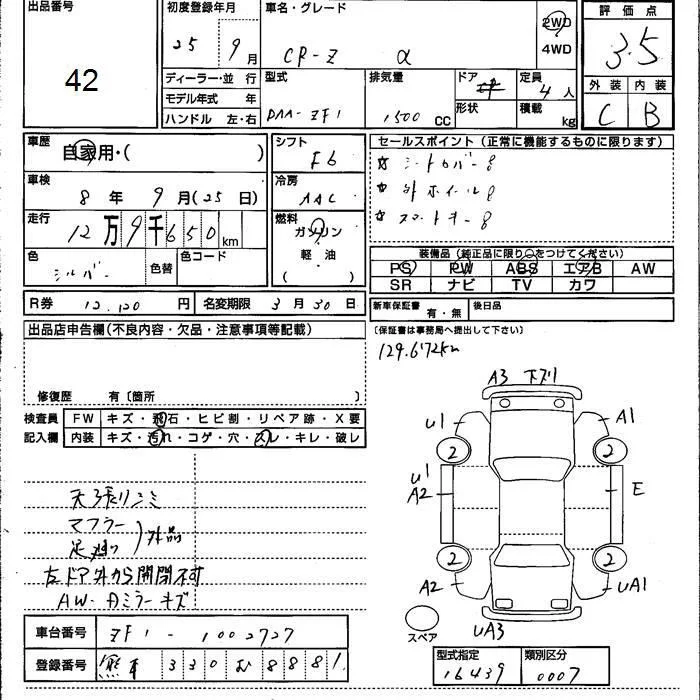 出品番号
42
初度登録年月
25 9月
車名・グレード
CR-Z α
2WD
4WD
評価点
3.5
外装 内装
C B
ディーラー・並行
モデル年式 年
ハンドル 左・右
型式
DAA-ZF1
排気量
1500 CC
ドア
形状
定員
4人
積載
kg
車歴
自家用・( )
車検
8年 9月(25日)
走行
12万9千650km
色
シルバー
色替
色コード
シフト
F6
冷房
AAC
燃料
ガソリン
軽油
( )
セールスポイント(正常に機能するものに限ります)
☆ シートカバー8
☆ 外ホイール8
☆ スマートキー8
装備品(純正品に限り○をつけてください)
PS PW ABS エアB AW
SR ナビ TV カワ
R券 12,120円
名変期限 3月30日
新車保証書 有・無
後日品
(保証書は事務局へ提出して下さい)
出品店申告欄(不良内容・欠品・注意事項等記載)
修復歴 有〔箇所
129.672km
検査員
記入欄
FW キズ・飛石・ヒビ割・リペア跡・X要
内装 キズ・汚れ・コゲ・穴・スレ・キレ・破レ
天張りシミ
マフラー
足廻り
外品
左ドア外から開閉不可
AW・Aミラーキズ
A3 下ズリ
U1 A1
2 2
U1
A2 E
2 2
A2 UA1
UA3
スペア
車台番号 ZF1-1002727
登録番号 熊本 330 む 8881
型式指定 類別区分
16439 0007